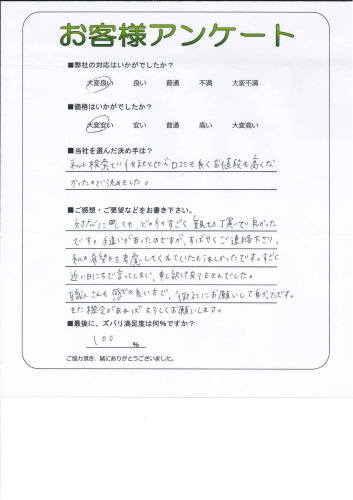 お客様アンケート
■弊社の対応はいかがでしたか？
大変良い 良い 普通 不満 大変不満
■価格はいかがでしたか？
大変安い 安い 普通 高い 大変高い
■当社を選んだ決め手は？
ネット検索で他社と比べ口コミも良くお値段も高くな
かったので決めました。
■ご感想・ご要望などをお書き下さい。
対応に関しても、どの方もすごく親切丁寧で良かった
です。手違いがあったのですが、すばやくご連絡下さり、
私の希望日を考慮してくれていたもうれしかったです。すごく
近い日にちで言ってしまい、申し訳ありませんでした。
職人さんも感じの良い方で、御社にお願いして良かったです。
また機会があればよろしくお願いします。
■最後に、ズバリ満足度は何％ですか？
100 %
ご協力頂き、誠にありがとうございました。